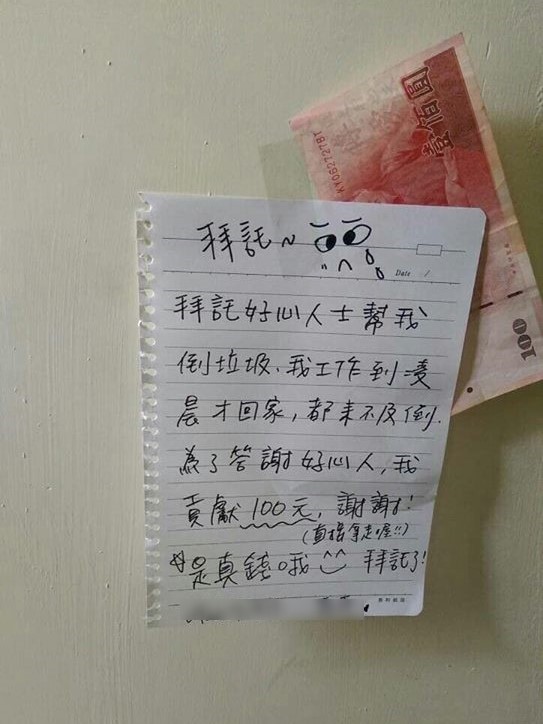 壹佰圓
KY062727BT
100
拜託~
Date /
拜託好心人士幫我
倒垃圾、我工作到凌
晨才回家,都來不及倒.
為了答謝好心人,我
貢獻100元,謝謝!
(直接拿走喔!!)
☆是真錢哦^^ 拜託了!